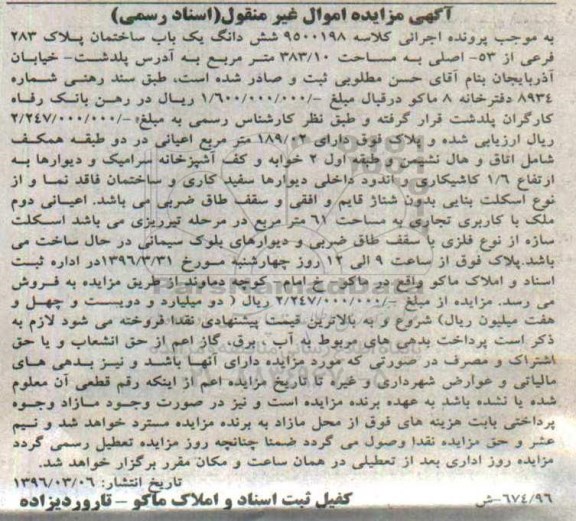 آگهی مزایده اموال غیر منقول(اسناد رسمی)
به موجب پرونده اجرائی کلاسه ۹۵۰۰۱۹۸ شش دانگ یک باب ساختمان پلاک ۲۸۳
فرعی از ۵۳- اصلی به مساحت ۳۸۳/۱۰ متر مربع به آدرس پلدشت- خیابان
آذربایجان بنام آقای حسن مطلوبی ثبت و صادر شده است، طبق سند رهنی شماره
۸۹۳۴ دفترخانه ۸ ماکو درقبال مبلغ -/۱/۶۰۰/۰۰۰/۰۰۰ ریال در رهن بانک رفاه
کارگران پلدشت قرار گرفته و طبق نظر کارشناس رسمی به مبلغ -/۲/۲۴۷/۰۰۰/۰۰۰
ریال ارزیابی شده و پلاک فوق دارای ۱۸۹/۰۲ متر مربع اعیانی در دو طبقه همکف
شامل اتاق و هال نشیمن و طبقه اول ۲ خوابه و کف آشپزخانه سرامیک و دیوارها به
ارتفاع ۱/۶ کاشیکاری و اندود داخلی دیوارها سفید کاری و ساختمان فاقد نما و از
نوع اسکلت بنایی بدون شناژ قایم و افقی و سقف طاق ضربی می باشد. اعیانی دوم
ملک با کاربری تجاری به مساحت ۶۱ متر مربع در مرحله تیرریزی می باشد اسکلت
سازه از نوع فلزی با سقف طاق ضربی و دیوارهای بلوک سیمانی در حال ساخت می
باشد.پلاک فوق از ساعت ۹ الی ۱۲ روز چهارشنبه مورخ ۱۳۹۶/۳/۳۱در اداره ثبت
اسناد و املاک ماکو واقع در ماکو - کوچه دماوند از طریق مزایده به فروش
می رسد. مزایده از مبلغ -/۲/۲۴۷/۰۰۰/۰۰۰ ریال ( دو میلیارد و دویست و چهل و
هفت میلیون ریال) شروع و به بالاترین قیمت پیشنهادی نقدا فروخته می شود لازم به
ذکر است پرداخت بدهی های مربوط به آب ، برق، گاز اعم از حق انشعاب و یا حق
اشتراک و مصرف در صورتی که مورد مزایده دارای آنها باشد و نیز بدهی های
مالیاتی و عوارض شهرداری و غیره تا تاریخ مزایده اعم از اینکه رقم قطعی آن معلوم
شده یا نشده باشد به عهده برنده مزایده است و نیز در صورت وجود مازاد وجوه
پرداختی بابت هزینه های فوق از محل مازاد به برنده مزایده مسترد خواهد شد و نیم
عشر و حق مزایده نقدا وصول می گردد ضمنا چنانچه روز مزایده تعطیل رسمی گردد
مزایده روز اداری بعد از تعطیلی در همان ساعت و مکان مقرر برگزار خواهد شد.
تاریخ انتشار: ۱۳۹۶/۰۳/۰۶
۶۷۴/۹۶-ش کفیل ثبت اسناد و املاک ماکو - تاروردیزاده